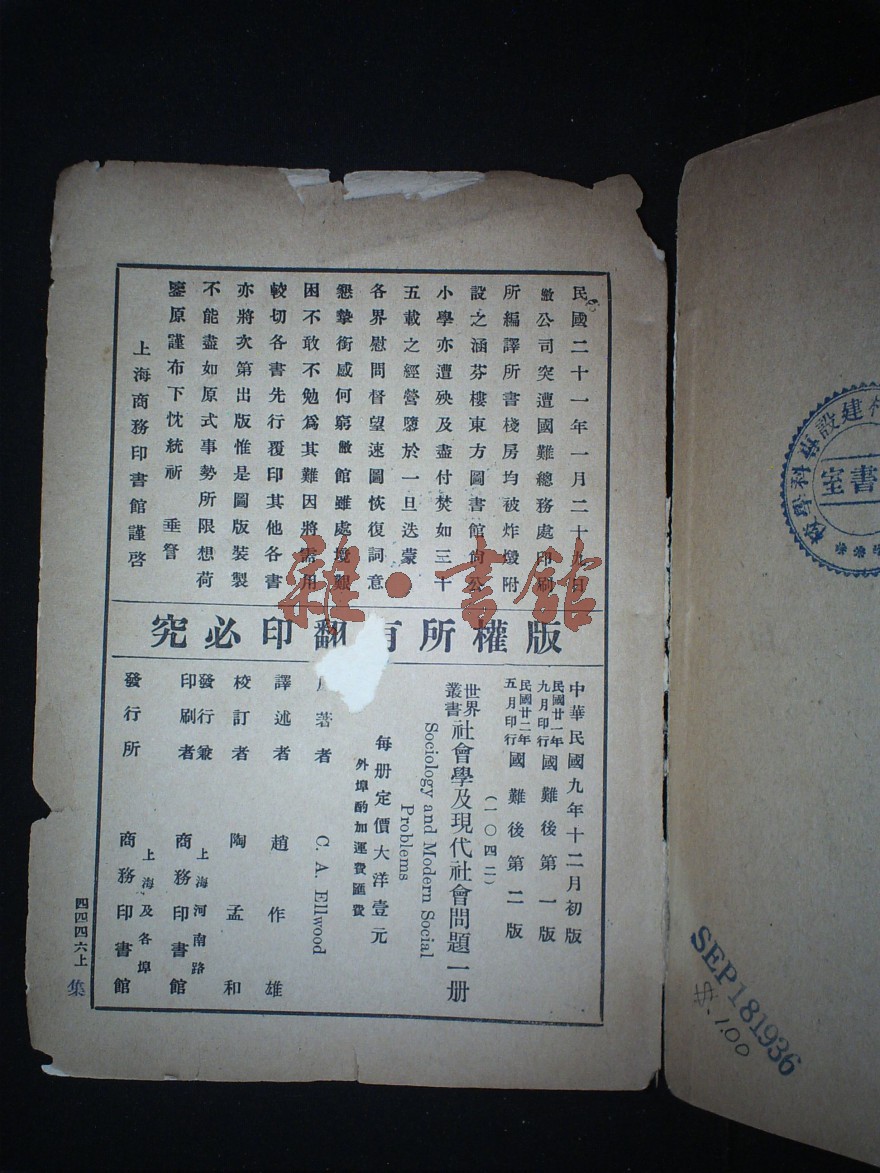 民國二十一年一月二十九日
敝公司突遭國難總務處印刷
所編譯所書棧房均被炸燬附
設之涵芬樓東方圖書館尚公
小學亦遭殃及盡付焚如三十
五載之經營隳於一旦迭蒙
各界慰問督望速圖恢復詞意
懇摯銜感何窮敝館雖處境艱
困不敢不勉為其難因將需用
較切各書先行覆印其他各書
亦將次第出版惟是圖版裝製
不能盡如原式事勢所限想荷
鑒原謹布下忱統祈 垂詧
上海商務印書館謹啓
版權所有翻印必究
中華民國九年十二月初版
民國廿一年九月印行 國難後第一版
民國廿二年五月印行 國難後第二版
(一〇四二)
世界叢書 社會學及現代社會問題一册
Sociology and Modern Social
Problems
每册定價大洋壹元
外埠酌加運費匯費
著者 C. A. Ellwood
譯述者 趙作雄
校訂者 陶孟和
發行兼印刷者 上海河南路 商務印書館
發行所 上海及各埠 商務印書館
四四四六上
集
雜·書館
建設專科學校
書室
SEP 18 1936
$1.00